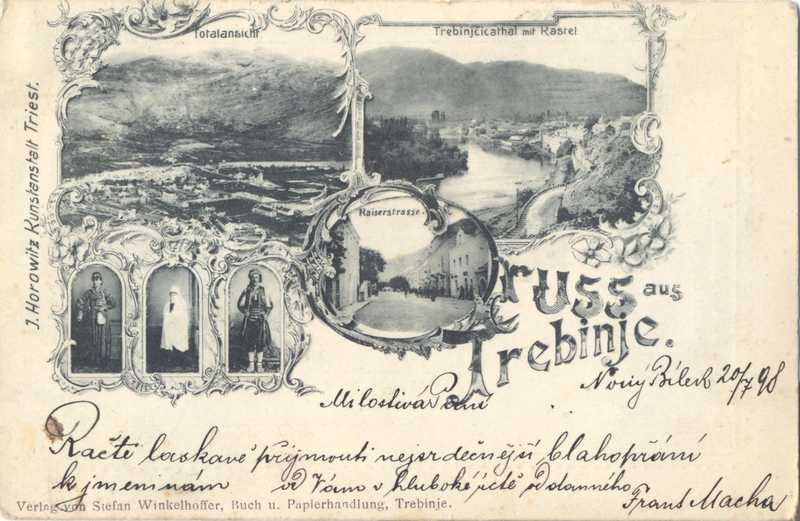 Totalansicht
Trebinjčicathal mit Kastel
J. Horowitz Kunstanstalt Triest.
Kaiserstrasse.
Gruss aus
Trebinje.
Nový Bilek 20/7 98
Milostivá Paní
Račte laskavě přijmouti nejsrdečnější blahopřání
k jmeninám od Vám v hluboké úctě oddaného
Frant Macha
Verlag von Stefan Winkelhoffer, Buch u. Papierhandlung, Trebinje.